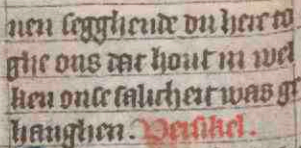 nen segghende du here to
ghe ons dat hout in wel
ken onse salicheit was g
hanghen. Versikel.